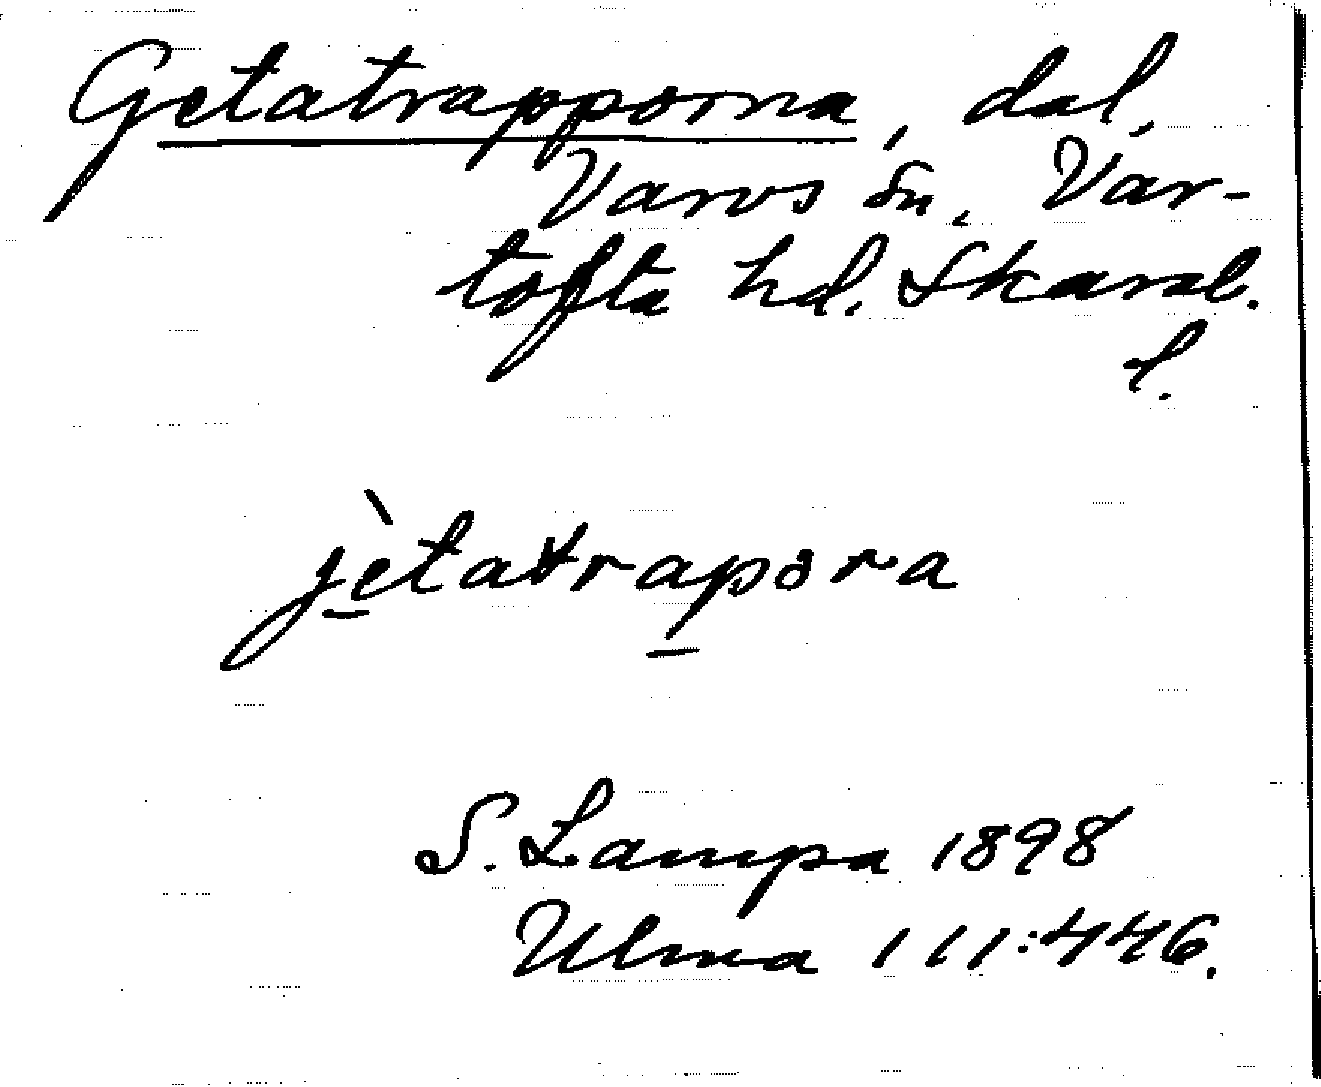 Getatrapporna, dal,
Varvs sn, Var-
tofta hd. Skarab.
l.
jètatrapora
S. Lampa 1898
Ulma 111:446.